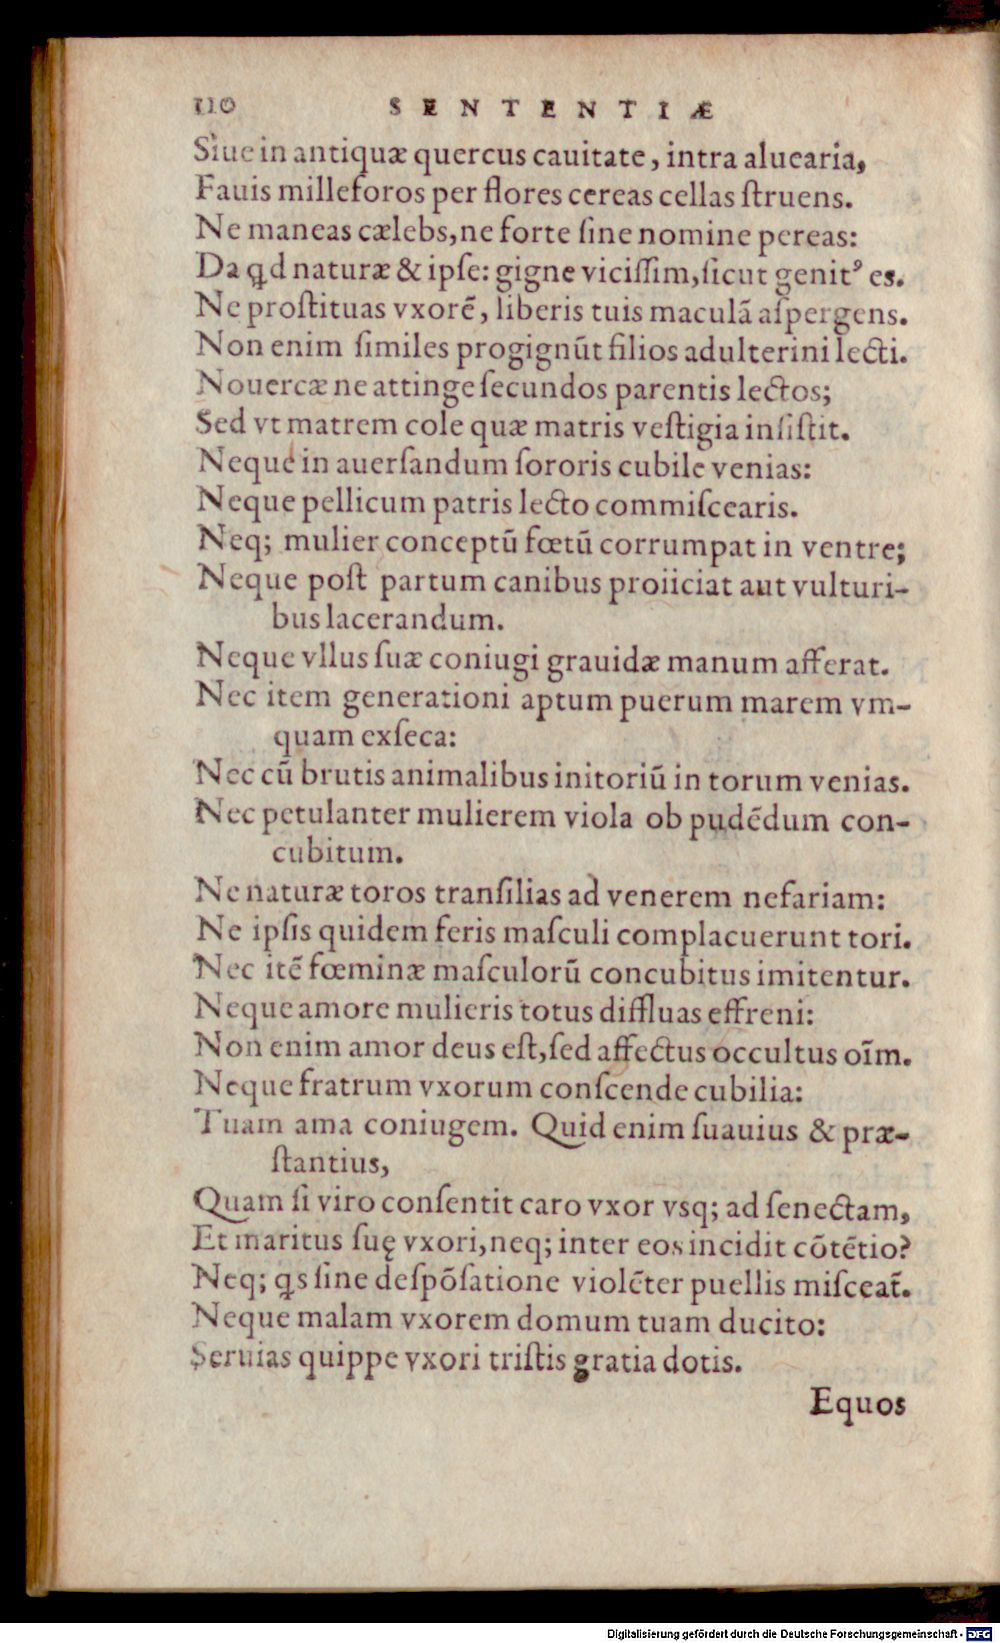 110 SENTENTIÆ
Siue in antiquæ quercus cauitate, intra aluearia,
Fauis milleforos per flores cereas cellas ſtruens.
Ne maneas cælebs, ne forte ſine nomine pereas:
Da qd naturæ & ipſe: gigne viciſſim, ſicut genitꝰ es.
Ne proſtituas vxorẽ, liberis tuis maculã aſpergens.
Non enim ſimiles progignũt filios adulterini lecti.
Nouercæ ne attinge ſecundos parentis lectos;
Sed vt matrem cole quæ matris veſtigia inſiſtit.
Neque in auerſandum ſororis cubile venias:
Neque pellicum patris lecto commiſcearis.
Neq; mulier conceptũ fœtũ corrumpat in ventre;
Neque poſt partum canibus proiiciat aut vulturi-
bus lacerandum.
Neque vllus ſuæ coniugi grauidæ manum afferat.
Nec item generationi aptum puerum marem vm-
quam exſeca:
Nec cũ brutis animalibus initoriũ in torum venias.
Nec petulanter mulierem viola ob pudẽdum con-
cubitum.
Ne naturæ toros tranſilias ad venerem nefariam:
Ne ipſis quidem feris maſculi complacuerunt tori.
Nec itẽ fœminæ maſculorũ concubitus imitentur.
Neque amore mulieris totus diffluas effreni:
Non enim amor deus eſt, ſed affectus occultus oĩm.
Neque fratrum vxorum conſcende cubilia:
Tuam ama coniugem. Quid enim ſuauius & præ-
ſtantius,
Quam ſi viro conſentit caro vxor vsq; ad ſenectam,
Et maritus ſuę vxori, neq; inter eos incidit cõtẽtio?
Neq; qs ſine deſpõſatione violẽter puellis miſceat̃.
Neque malam vxorem domum tuam ducito:
Seruias quippe vxori triſtis gratia dotis.
Equos
Digitalisierung gefördert durch die Deutsche Forschungsgemeinschaft - DFG